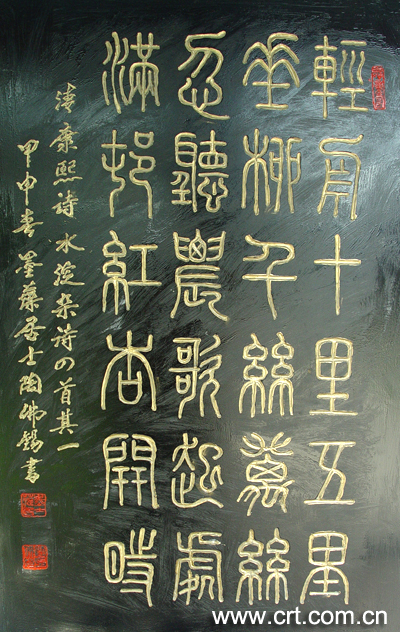 輕舟十里五里
垂柳千絲萬絲
忽聽農歌起處
滿邨紅杏開時
清康熙詩 水淀杂诗の首其一
甲申春 居士陶佛錫書
www.crt.com.cn